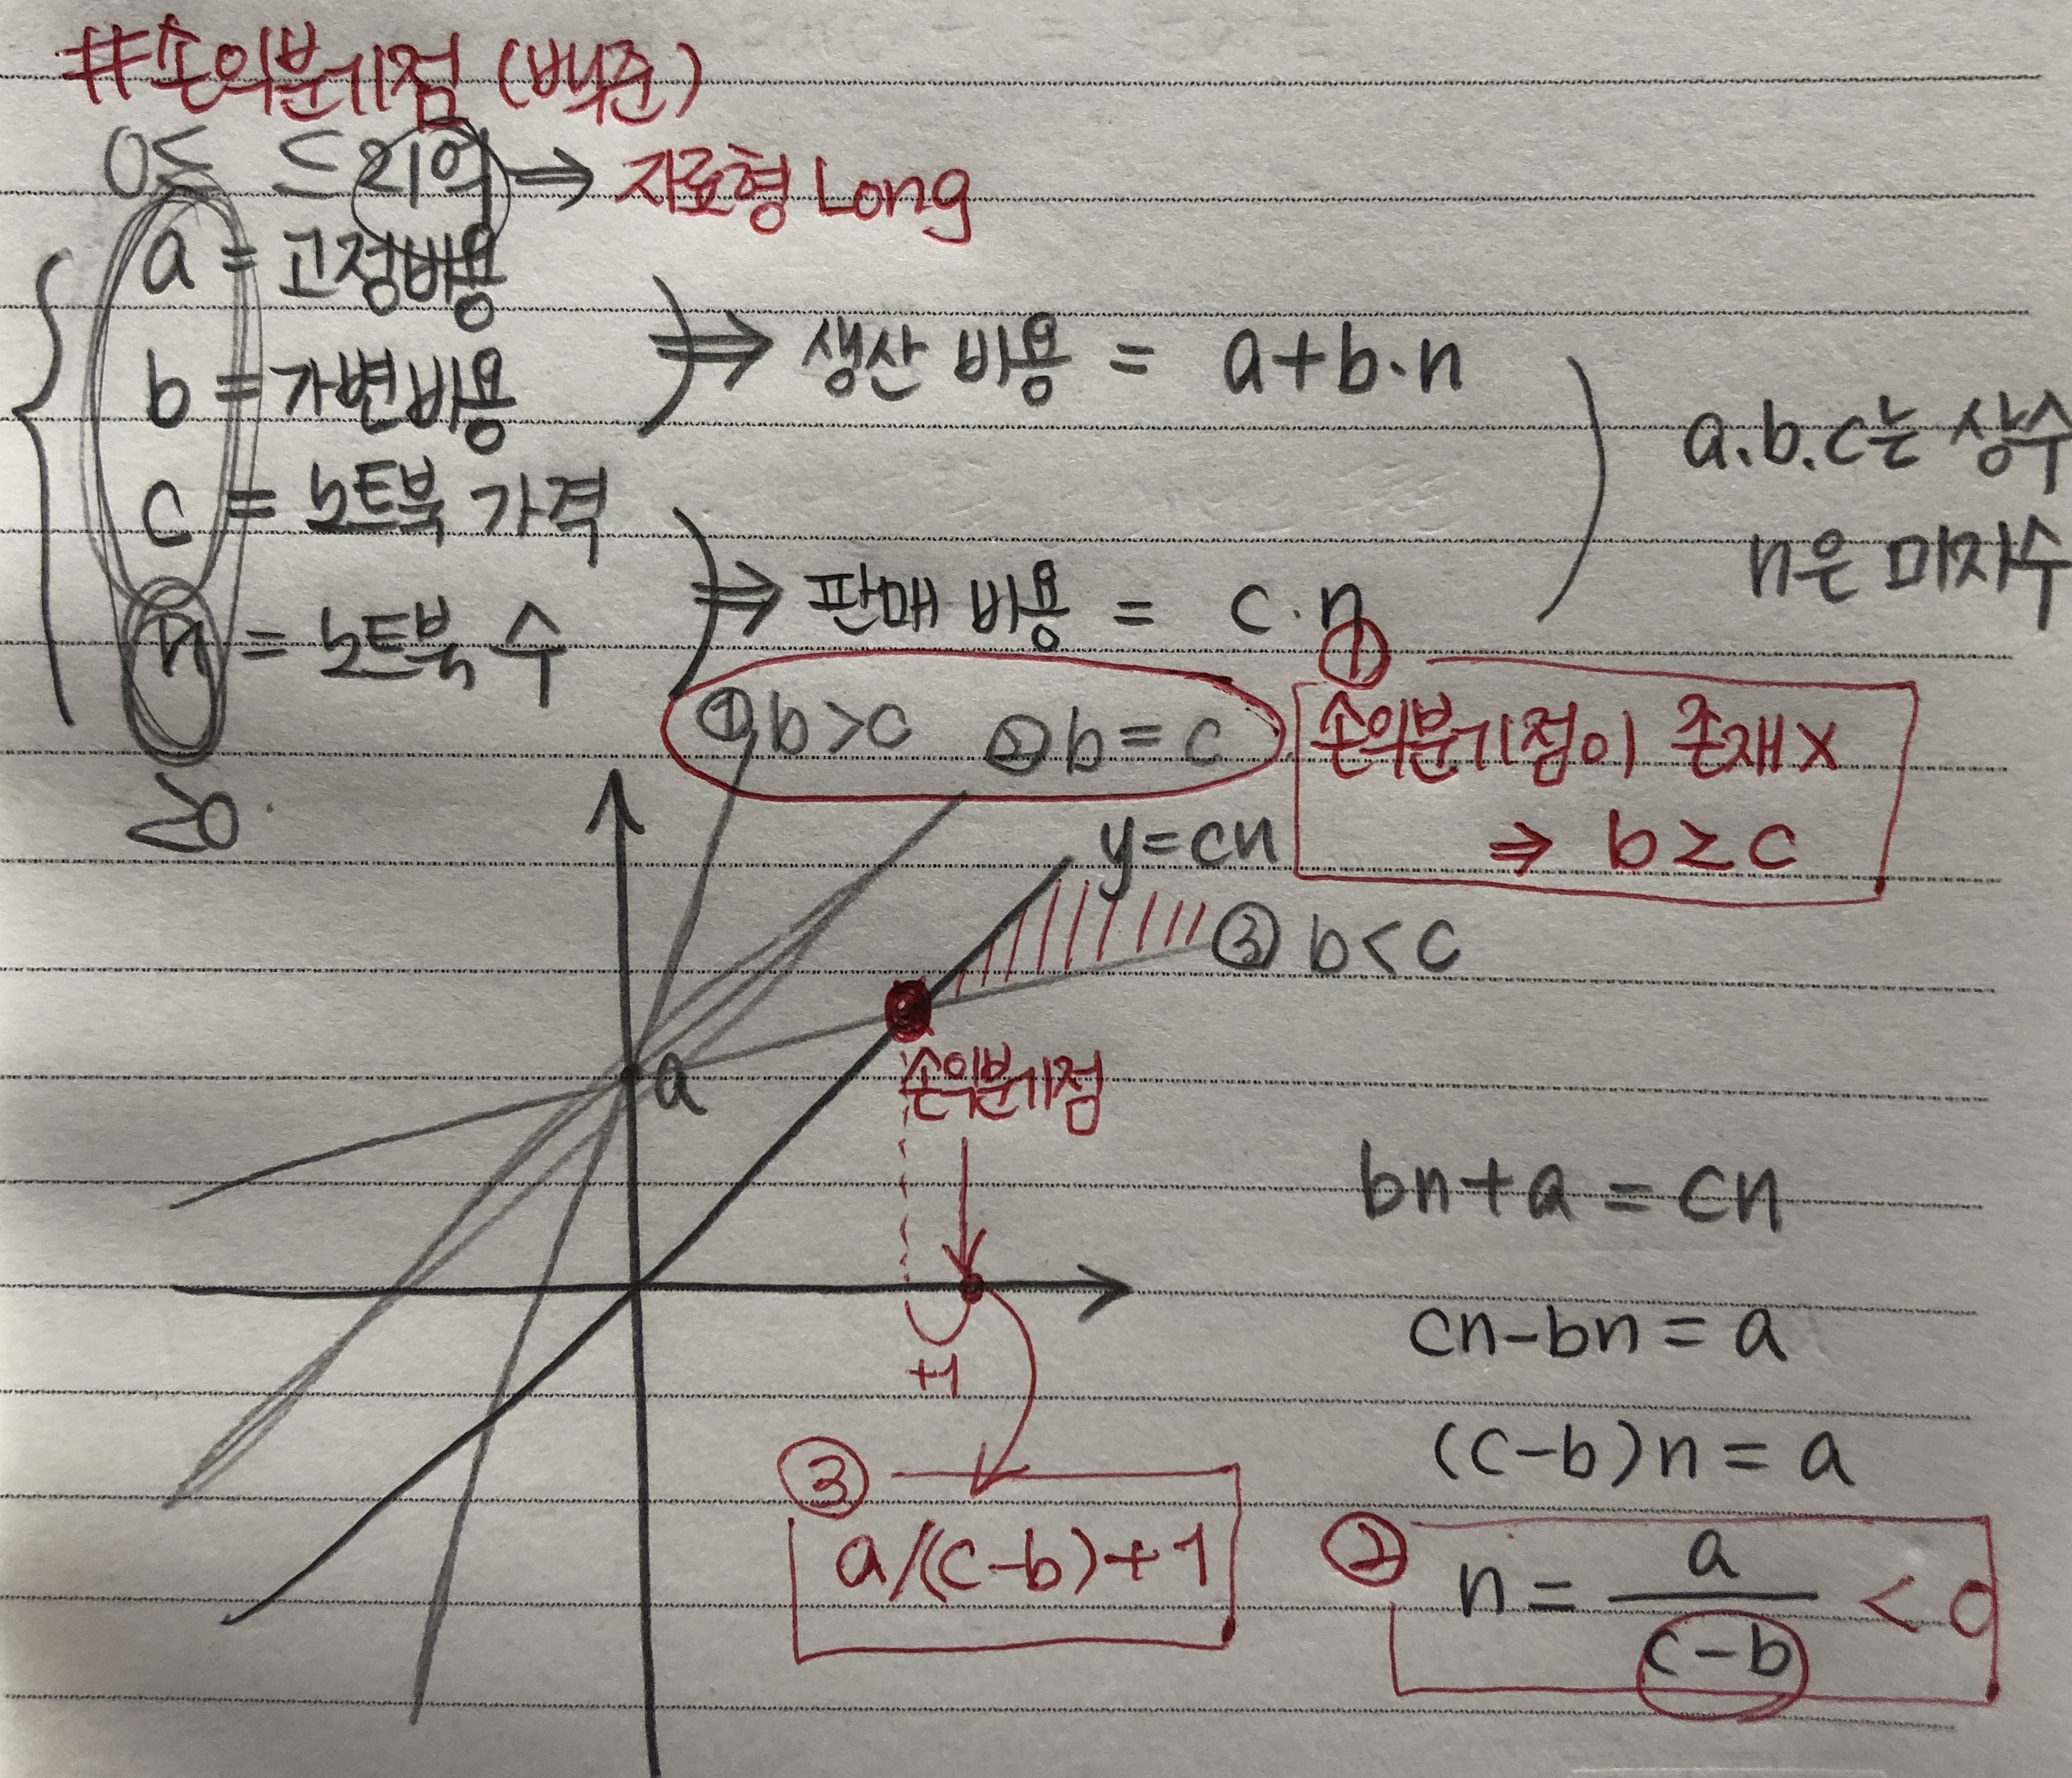 #손익분기점 (백준)
0≤ ≤21억 ⇒ 자료형 Long
a = 고정비용
b = 가변비용
⇒ 생산 비용 = a+b·n
c = 노트북 가격
n = 노트북 수
⇒ 판매 비용 = c·n
a.b.c는 상수
n은 미지수
<0.
① b>c ② b=c
①
손익분기점이 존재X
⇒ b≥c
y=cn
③ b<c
a
손익분기점
+1
bn+a=cn
cn-bn=a
(c-b)n=a
③
a/(c-b)+1
②
n = a/(c-b) < 0